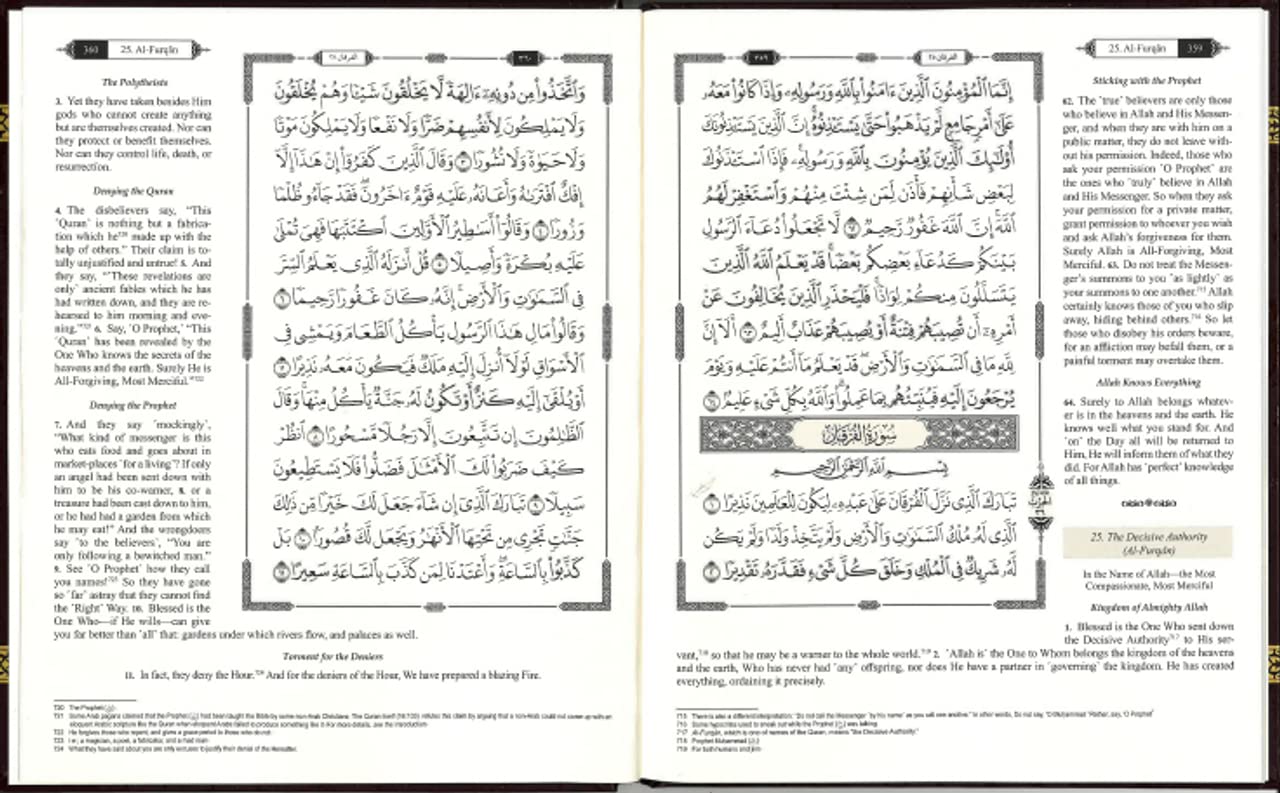 25. Al-Furqân 359
Sticking with the Prophet
62. The ˹true˺ believers are only those
who believe in Allah and His Messen-
ger, and when they are with him on a
public matter, they do not leave with-
out his permission. Indeed, those who
ask your permission ˹O Prophet˺ are
the ones who ˹truly˺ believe in Allah
and His Messenger. So when they ask
your permission for a private matter,
grant permission to whoever you wish
and ask Allah's forgiveness for them.
Surely Allah is All-Forgiving, Most
Merciful. 63. Do not treat the Messen-
ger's summons to you ˹as lightly˺ as
your summons to one another.⁷¹⁵ Allah
certainly knows those of you who slip
away, hiding behind others.⁷¹⁶ So let
those who disobey his orders beware,
for an affliction may befall them, or a
painful torment may overtake them.
Allah Knows Everything
64. Surely to Allah belongs whatev-
er is in the heavens and the earth. He
knows well what you stand for. And
˹on˺ the Day all will be returned to
Him, He will inform them of what they
did. For Allah has ˹perfect˺ knowledge
of all things.
25. The Decisive Authority
(Al-Furqân)
In the Name of Allah—the Most
Compassionate, Most Merciful
Kingdom of Almighty Allah
1. Blessed is the One Who sent down
the Decisive Authority⁷¹⁷ to His ser-
vant,⁷¹⁸ so that he may be a warner to the whole world.⁷¹⁹ 2. ˹Allah is˺ the One to Whom belongs the kingdom of the heavens
and the earth, Who has never had ˹any˺ offspring, nor does He have a partner in ˹governing˺ the kingdom. He has created
everything, ordaining it precisely.
٣٥٩ الفرقان ٢٥
إِنَّمَا ٱلْمُؤْمِنُونَ ٱلَّذِينَ ءَامَنُوا۟ بِٱللَّهِ وَرَسُولِهِۦ وَإِذَا كَانُوا۟ مَعَهُۥ
عَلَىٰٓ أَمْرٍ جَامِعٍ لَّمْ يَذْهَبُوا۟ حَتَّىٰ يَسْتَـْٔذِنُوهُ إِنَّ ٱلَّذِينَ يَسْتَـْٔذِنُونَكَ
أُو۟لَـٰٓئِكَ ٱلَّذِينَ يُؤْمِنُونَ بِٱللَّهِ وَرَسُولِهِۦ فَإِذَا ٱسْتَـْٔذَنُوكَ
لِبَعْضِ شَأْنِهِمْ فَأْذَن لِّمَن شِئْتَ مِنْهُمْ وَٱسْتَغْفِرْ لَهُمُ
ٱللَّهَ إِنَّ ٱللَّهَ غَفُورٌ رَّحِيمٌ ٦٢ لَّا تَجْعَلُوا۟ دُعَآءَ ٱلرَّسُولِ
بَيْنَكُمْ كَدُعَآءِ بَعْضِكُم بَعْضًا قَدْ يَعْلَمُ ٱللَّهُ ٱلَّذِينَ
يَتَسَلَّلُونَ مِنكُمْ لِوَاذًا فَلْيَحْذَرِ ٱلَّذِينَ يُخَالِفُونَ عَنْ
أَمْرِهِۦٓ أَن تُصِيبَهُمْ فِتْنَةٌ أَوْ يُصِيبَهُمْ عَذَابٌ أَلِيمٌ ٦٣ أَلَآ إِنَّ
لِلَّهِ مَا فِى ٱلسَّمَـٰوَٰتِ وَٱلْأَرْضِ قَدْ يَعْلَمُ مَآ أَنتُمْ عَلَيْهِ وَيَوْمَ
يُرْجَعُونَ إِلَيْهِ فَيُنَبِّئُهُم بِمَا عَمِلُوا۟ وَٱللَّهُ بِكُلِّ شَىْءٍ عَلِيمٌۢ ٦٤
سُورَةُ الفُرْقَانِ
بِسْمِ ٱللَّهِ ٱلرَّحْمَـٰنِ ٱلرَّحِيمِ
تَبَارَكَ ٱلَّذِى نَزَّلَ ٱلْفُرْقَانَ عَلَىٰ عَبْدِهِۦ لِيَكُونَ لِلْعَـٰلَمِينَ نَذِيرًا ١
ٱلَّذِى لَهُۥ مُلْكُ ٱلسَّمَـٰوَٰتِ وَٱلْأَرْضِ وَلَمْ يَتَّخِذْ وَلَدًا وَلَمْ يَكُن
لَّهُۥ شَرِيكٌ فِى ٱلْمُلْكِ وَخَلَقَ كُلَّ شَىْءٍ فَقَدَّرَهُۥ تَقْدِيرًا ٢
715 There is also a different interpretation: "Do not call the Messenger ˹by his name˺ as you call one another." In other words, Do not say, "O Muḥammad." Rather, say, "O Prophet."
716 Some hypocrites used to sneak out while the Prophet (ﷺ) was talking.
717 Al-Furqân, which is one of names of the Quran, means "the Decisive Authority."
718 Prophet Muḥammad (ﷺ).
719 For both humans and jinn.
360 25. Al-Furqân
The Polytheists
3. Yet they have taken besides Him
gods who cannot create anything
but are themselves created. Nor can
they protect or benefit themselves.
Nor can they control life, death, or
resurrection.
Denying the Quran
4. The disbelievers say, "This
˹Quran˺ is nothing but a fabrica-
tion which he⁷²⁰ made up with the
help of others." Their claim is to-
tally unjustified and untrue! 5. And
they say, "˹These revelations are
only˺ ancient fables which he has
had written down, and they are re-
hearsed to him morning and eve-
ning."⁷²¹ 6. Say, ˹O Prophet,˺ "This
˹Quran˺ has been revealed by the
One Who knows the secrets of the
heavens and the earth. Surely He is
All-Forgiving, Most Merciful."⁷²²
Denying the Prophet
7. And they say ˹mockingly˺,
"What kind of messenger is this
who eats food and goes about in
market-places ˹for a living˺? If only
an angel had been sent down with
him to be his co-warner, 8. or a
treasure had been cast down to him,
or he had had a garden from which
he may eat!" And the wrongdoers
say ˹to the believers˺, "You are
only following a bewitched man."
9. See ˹O Prophet˺ how they call
you names!⁷²³ So they have gone
so ˹far˺ astray that they cannot find
the ˹Right˺ Way. 10. Blessed is the
One Who—if He wills—can give
you far better than ˹all˺ that: gardens under which rivers flow, and palaces as well.
Torment for the Deniers
11. In fact, they deny the Hour.⁷²⁴ And for the deniers of the Hour, We have prepared a blazing Fire.
الفرقان ٢٥ ٣٦٠
وَٱتَّخَذُوا۟ مِن دُونِهِۦٓ ءَالِهَةً لَّا يَخْلُقُونَ شَيْـًٔا وَهُمْ يُخْلَقُونَ
وَلَا يَمْلِكُونَ لِأَنفُسِهِمْ ضَرًّا وَلَا نَفْعًا وَلَا يَمْلِكُونَ مَوْتًا
وَلَا حَيَوٰةً وَلَا نُشُورًا ٣ وَقَالَ ٱلَّذِينَ كَفَرُوٓا۟ إِنْ هَـٰذَآ إِلَّآ
إِفْكٌ ٱفْتَرَىٰهُ وَأَعَانَهُۥ عَلَيْهِ قَوْمٌ ءَاخَرُونَ فَقَدْ جَآءُو ظُلْمًا
وَزُورًا ٤ وَقَالُوٓا۟ أَسَـٰطِيرُ ٱلْأَوَّلِينَ ٱكْتَتَبَهَا فَهِىَ تُمْلَىٰ
عَلَيْهِ بُكْرَةً وَأَصِيلًا ٥ قُلْ أَنزَلَهُ ٱلَّذِى يَعْلَمُ ٱلسِّرَّ
فِى ٱلسَّمَـٰوَٰتِ وَٱلْأَرْضِ إِنَّهُۥ كَانَ غَفُورًا رَّحِيمًا ٦
وَقَالُوا۟ مَالِ هَـٰذَا ٱلرَّسُولِ يَأْكُلُ ٱلطَّعَامَ وَيَمْشِى فِى
ٱلْأَسْوَاقِ لَوْلَآ أُنزِلَ إِلَيْهِ مَلَكٌ فَيَكُونَ مَعَهُۥ نَذِيرًا ٧
أَوْ يُلْقَىٰٓ إِلَيْهِ كَنزٌ أَوْ تَكُونُ لَهُۥ جَنَّةٌ يَأْكُلُ مِنْهَا وَقَالَ
ٱلظَّـٰلِمُونَ إِن تَتَّبِعُونَ إِلَّا رَجُلًا مَّسْحُورًا ٨ ٱنظُرْ
كَيْفَ ضَرَبُوا۟ لَكَ ٱلْأَمْثَـٰلَ فَضَلُّوا۟ فَلَا يَسْتَطِيعُونَ
سَبِيلًا ٩ تَبَارَكَ ٱلَّذِىٓ إِن شَآءَ جَعَلَ لَكَ خَيْرًا مِّن ذَٰلِكَ
جَنَّـٰتٍ تَجْرِى مِن تَحْتِهَا ٱلْأَنْهَـٰرُ وَيَجْعَل لَّكَ قُصُورًۢا ١٠ بَلْ
كَذَّبُوا۟ بِٱلسَّاعَةِ وَأَعْتَدْنَا لِمَن كَذَّبَ بِٱلسَّاعَةِ سَعِيرًا ١١
720 The Prophet (ﷺ).
721 Some Arab pagans claimed that the Prophet (ﷺ) had been taught the Bible by some non-Arab Christians. The Quran itself (16:103) refutes this claim by arguing that a non-Arab could not come up with an
eloquent Arabic scripture like the Quran when eloquent Arabs failed to produce something like it. For more details, see the Introduction.
722 He forgives those who repent, and gives a grace period to those who do not.
723 i.e., a magician, a poet, a fabricator, and a mad man.
724 What they have said about you are only excuses to justify their denial of the Hereafter.